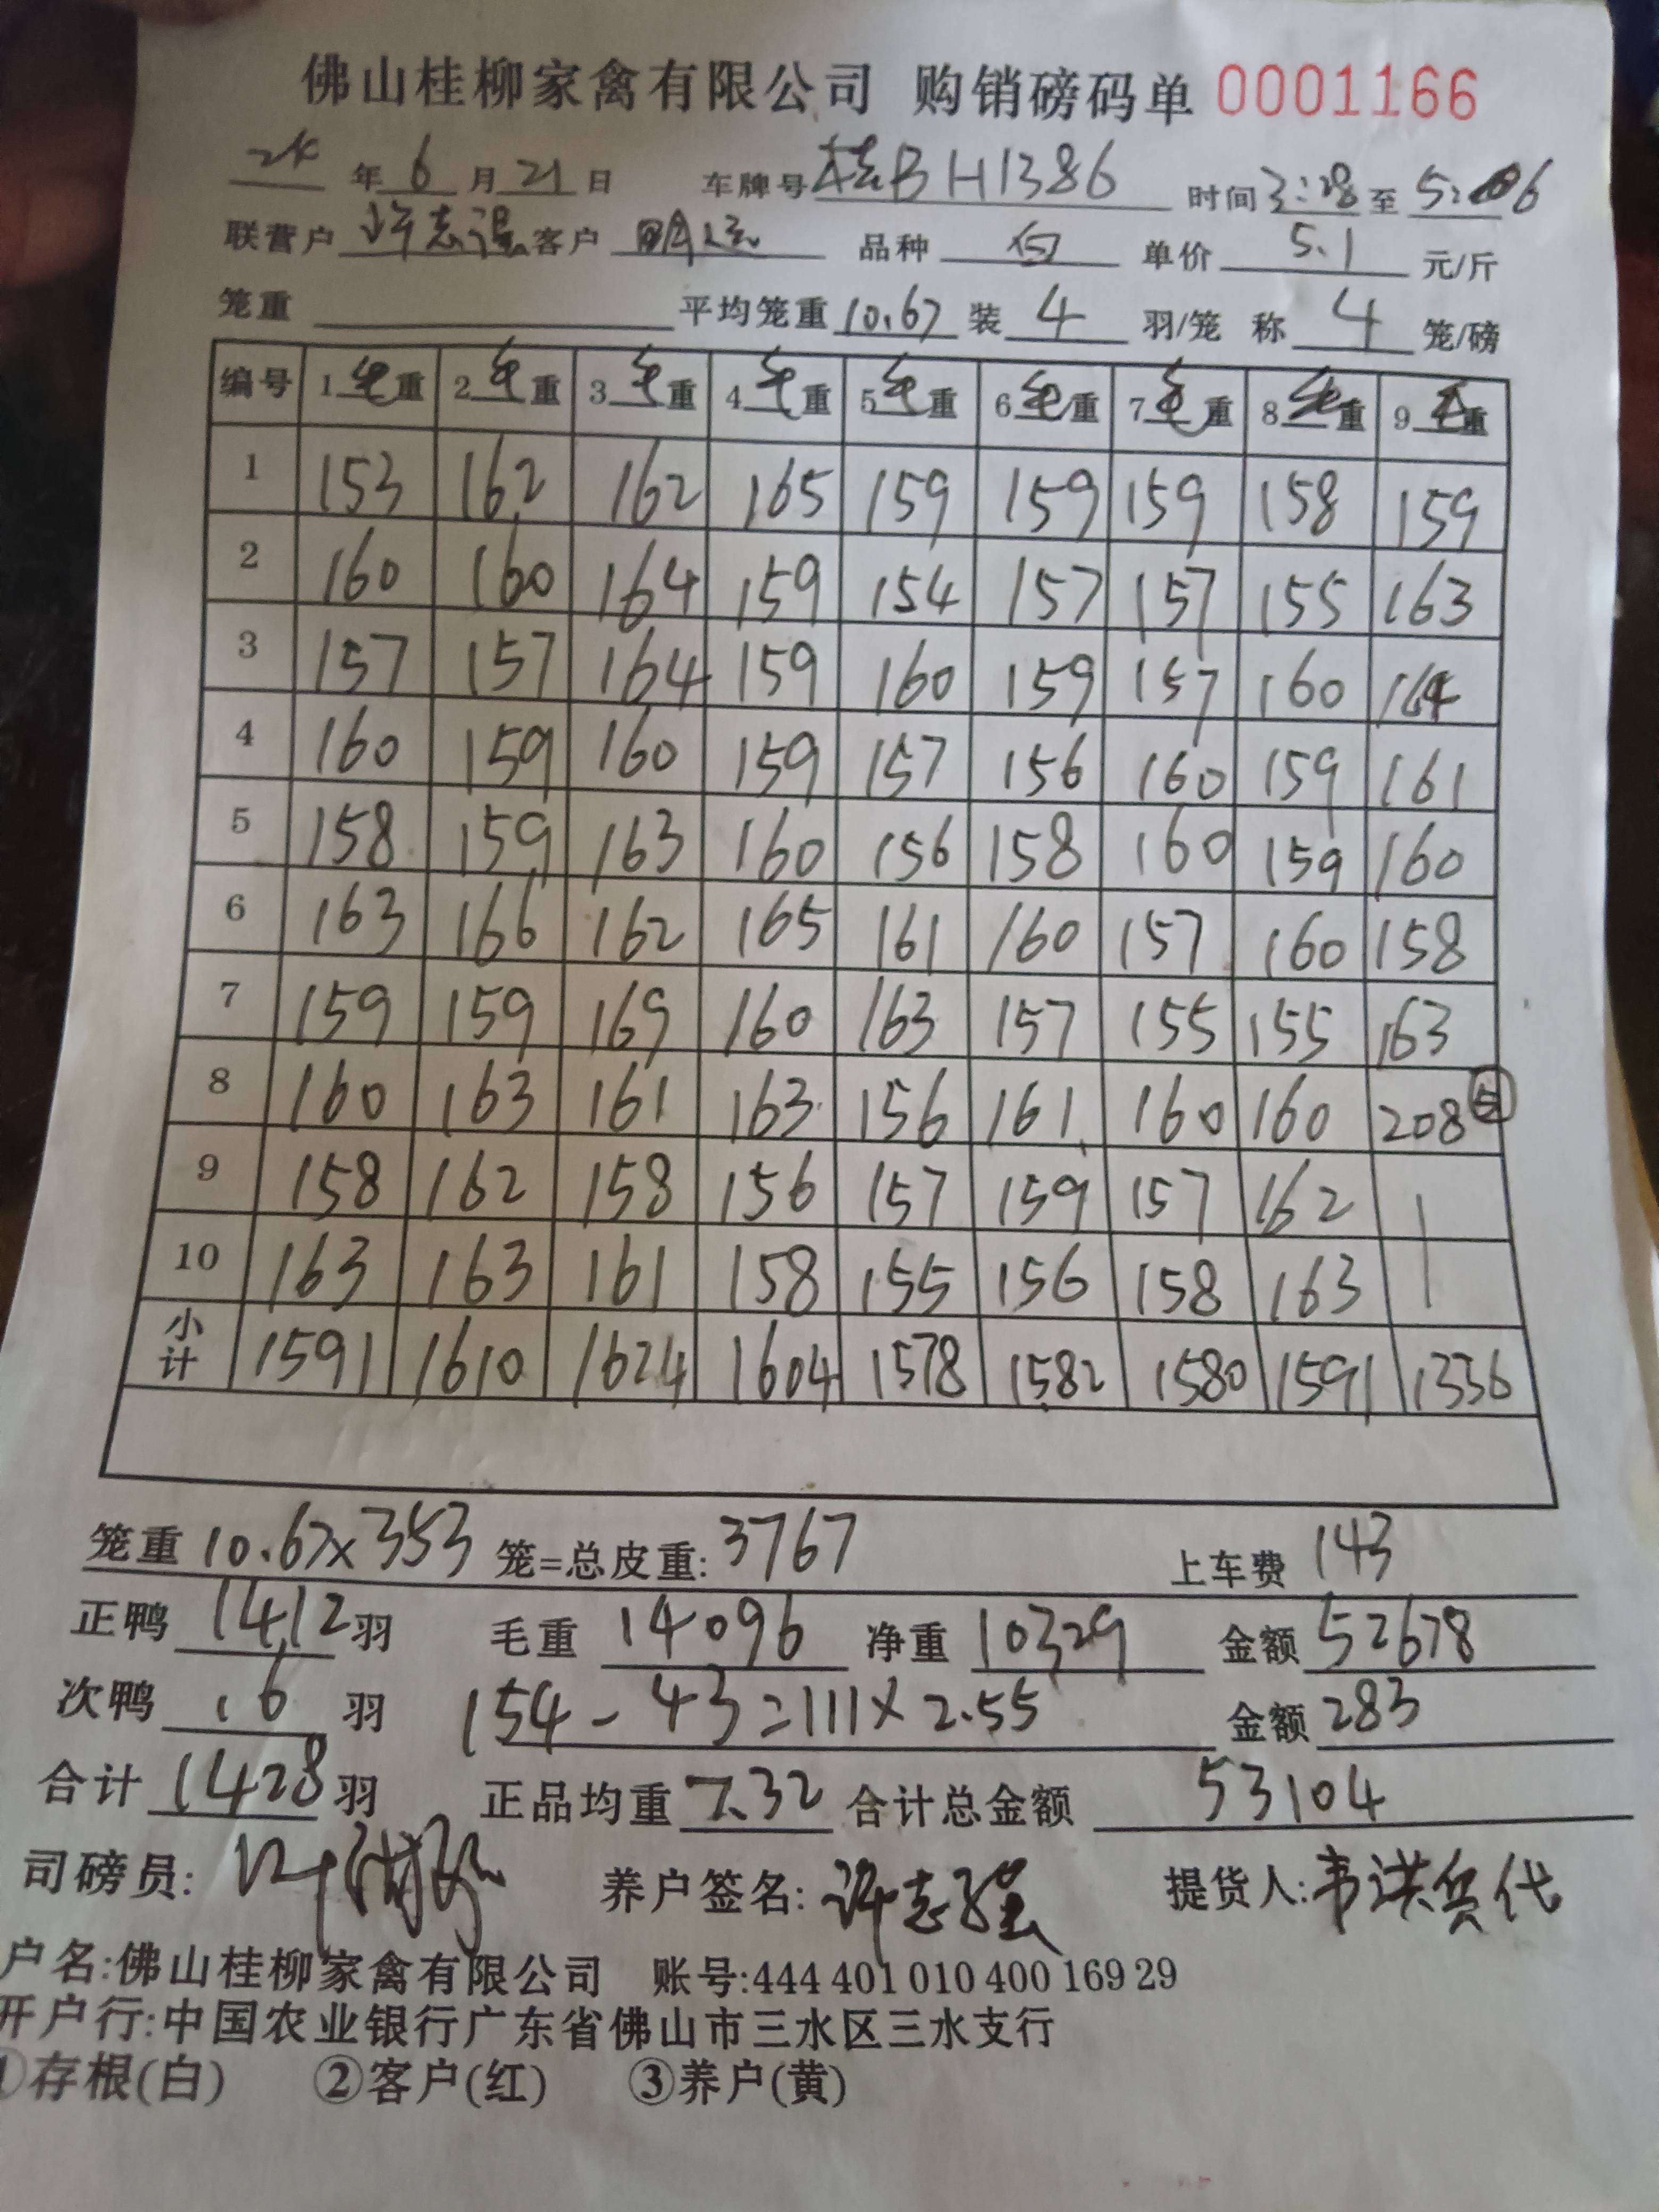 佛山桂柳家禽有限公司 购销磅码单 0001166
24年6月21日 车牌号桂BH1386 时间3:28至5:06
联营户 许志强 客户 品种 白 单价 5.1 元/斤
笼重 平均笼重10.67 装 4 羽/笼 称 4 笼/磅
编号 1毛重 2毛重 3毛重 4毛重 5毛重 6毛重 7毛重 8毛重 9毛重
1 153 162 162 165 159 159 159 158 159
2 160 160 164 159 154 157 157 155 163
3 157 157 164 159 160 159 157 160 164
4 160 159 160 159 157 156 160 159 161
5 158 159 163 160 156 158 160 159 160
6 163 166 162 165 161 160 157 160 158
7 159 159 169 160 163 157 155 155 163
8 160 163 161 163 156 161 160 160 208⑤
9 158 162 158 156 157 159 157 162
10 163 163 161 158 155 156 158 163
小计 1591 1610 1624 1604 1578 1582 1580 1591 1336
笼重 10.67×353 笼=总皮重:3767 上车费 143
正鸭 1412羽 毛重 14096 净重 10329 金额 52678
次鸭 16 羽 154-43=111×2.55 金额 283
合计 1428羽 正品均重 7.32 合计总金额 53104
司磅员: 养户签名: 许志强 提货人:韦洪兵代
户名:佛山桂柳家禽有限公司 账号:444 401 010 400 169 29
开户行:中国农业银行广东省佛山市三水区三水支行
①存根(白) ②客户(红) ③养户(黄)